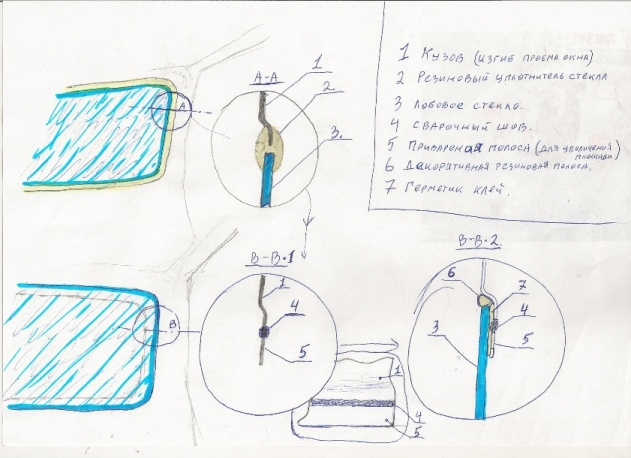 1 Кузов (изгиб проема окна)
2 Резиновый уплотнитель стекла
3 Лобовое стекло.
4 сварочный шов.
5 Приварен ая полоса (для увеличения площади)
6 Декоративная резиновая полоса.
7 Герметик клей.
А-А
1
2.
3.
А
В-В-1
1
4
5
В
1
4
5
В-В-2.
6
7
4
3
5